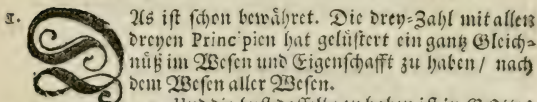 1. DAs iſt ſchon bewaͤhret. Die drey=Zahl mit allen
dreyen Principien hat geluͤſtert ein gantz Gleich=
nuͤß im Weſen und Eigenſchafft zu haben / nach
dem Weſen aller Weſen.